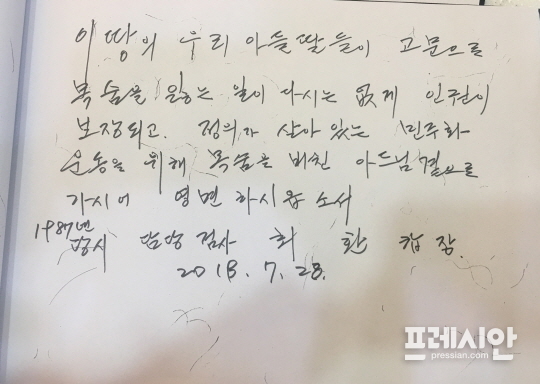 이 땅의 우리 아들딸들이 고문으로
목숨을 잃는 일이 다시는 없게 인권이
보장되고. 정의가 살아 있는 민주화
운동을 위해 목숨을 바친 아드님 곁으로
가시어 영면 하시옵소서
1987년
당시 담당 검사 최 환
2018. 7. 28.
프레시안
pressian.com